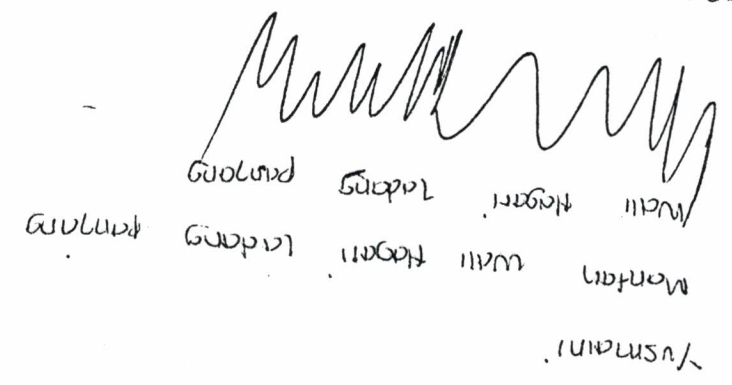 Yusmaini
Mantan Wali Nagari Ladang panjang
Wali Nagari Ladang panjang